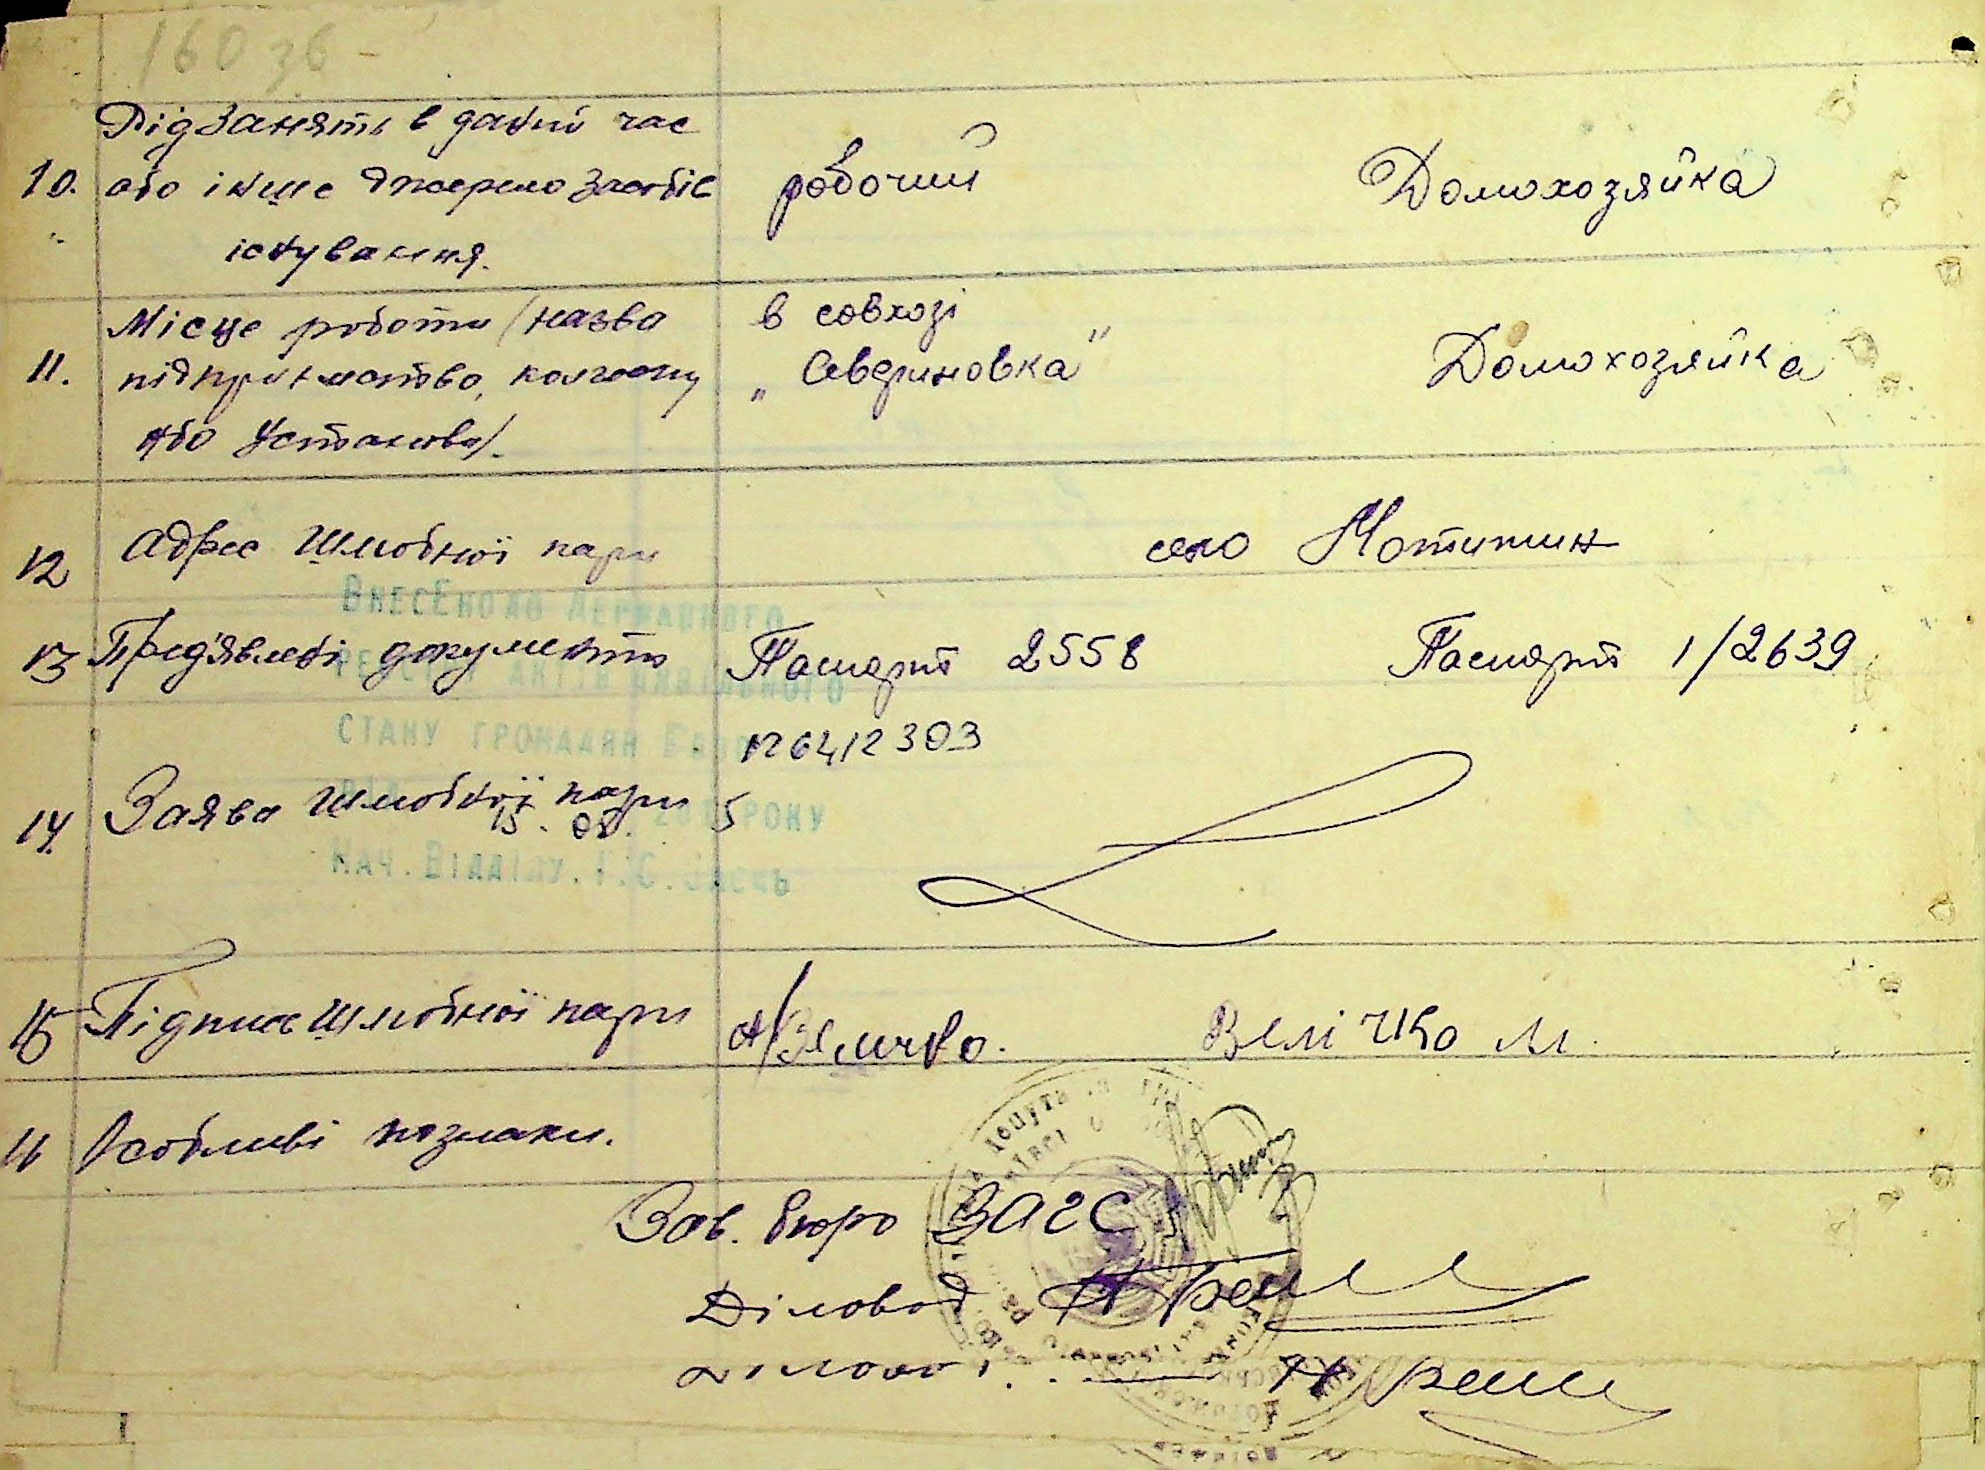 160 зв
Рід занять в даний час
10. або інше джерело засобів
існування.
робочий
Домохозяйка
Місце роботи (назва
11. підприємства, колгоспу
або установи).
в совхозі
„Севериновка"
Домохозяйка
12 Адрес шлюбної пари
село Мотижин
13 Пред'явлені документи
Паспорт 2558
1264/2303
Паспорт 1/2639
14. Заява шлюбної пари
15 Підпис шлюбної пари
Величко.
Велічко М.
16 Особливі познаки.
Зав. бюро ЗАГС
Діловод
ВНЕСЕНО ДО ДЕРЖАВНОГО
РЕЄСТРУ АКТІВ ЦИВІЛЬНОГО
СТАНУ ГРОМАДЯН
15. 08. 5
РОКУ
НАЧ. ВІДДІЛУ. Г.С.